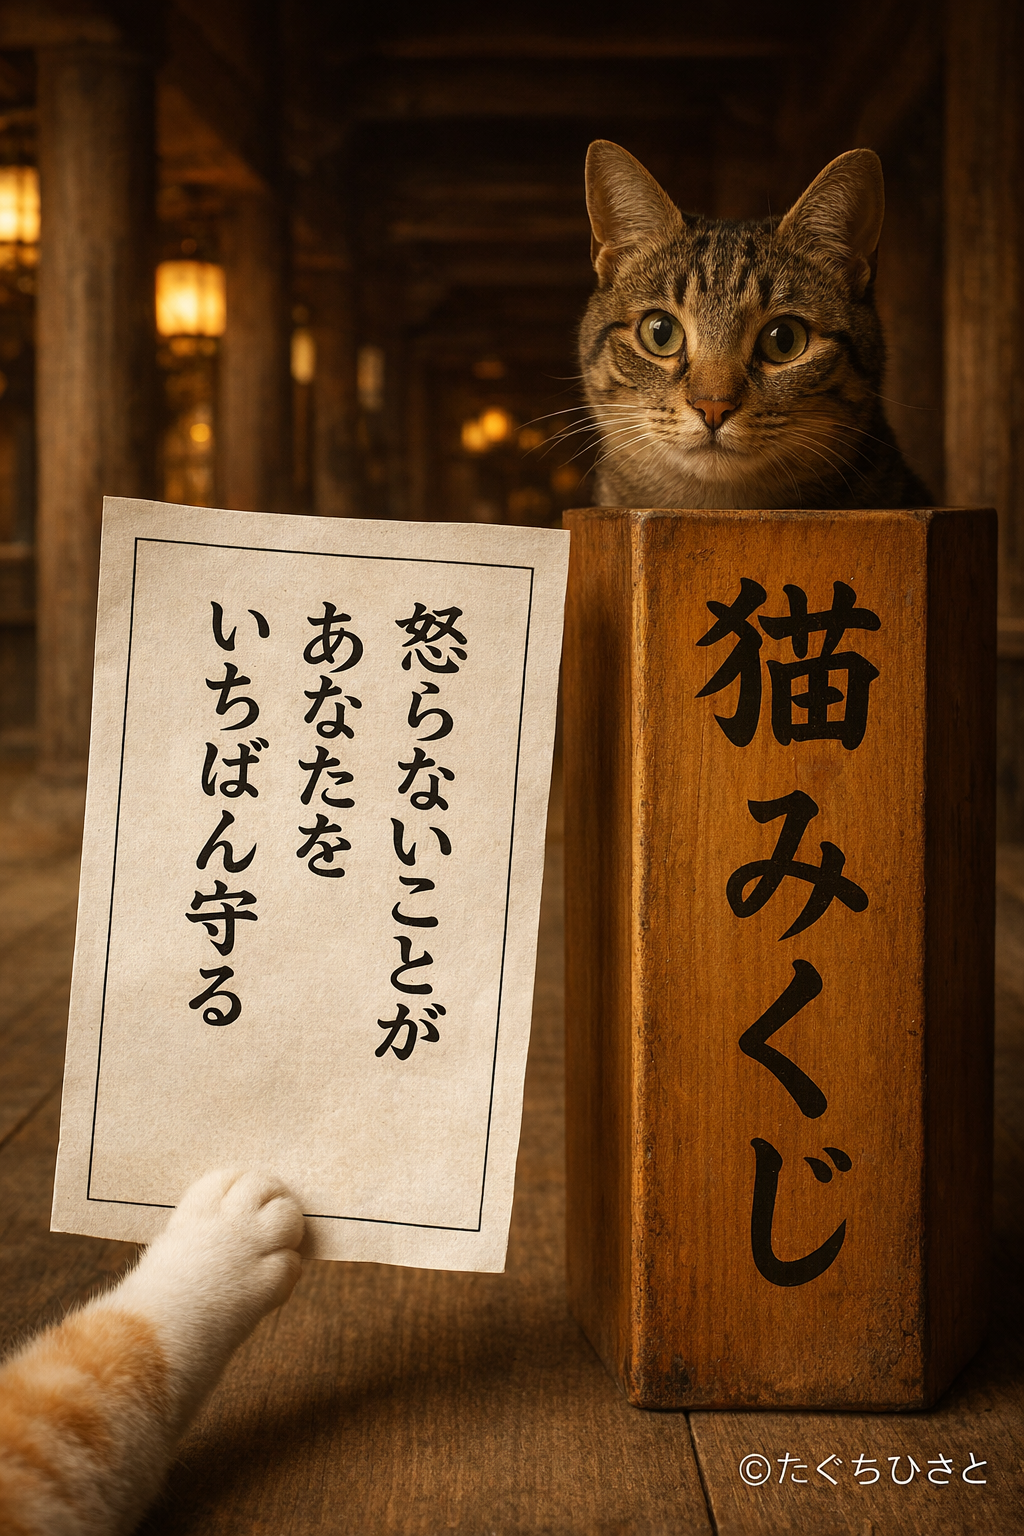 怒らないことが
あなたを
いちばん守る
猫みくじ
©たぐちひさと